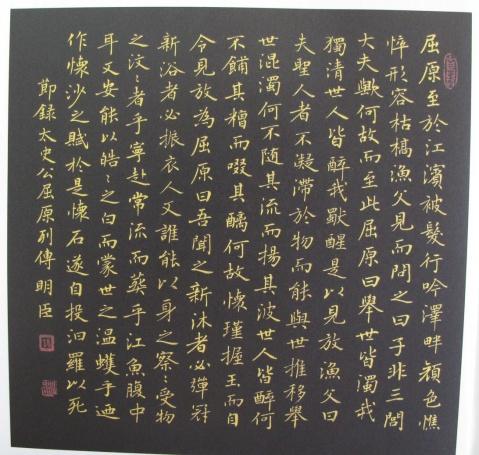 屈原至於江濱被髮行吟澤畔顏色憔
悴形容枯槁漁父見而問之曰子非三閭
大夫歟何故而至此屈原曰舉世皆濁我
獨清世人皆醉我獨醒是以見放漁父曰
夫聖人者不凝滯於物而能與世推移舉
世混濁何不隨其流而揚其波世人皆醉何
不餔其糟而啜其醨何故懷瑾握玉而自
令見放為屈原曰吾聞之新沐者必彈冠
新浴者必振衣人又誰能以身之察〻受物
之汶〻者乎寧赴常流而葬乎江魚腹中
耳又安能以皓〻之白而蒙世之温蠖乎迺
作懷沙之賦於是懷石遂自投汨羅以死
節錄太史公屈原列傳 明臣